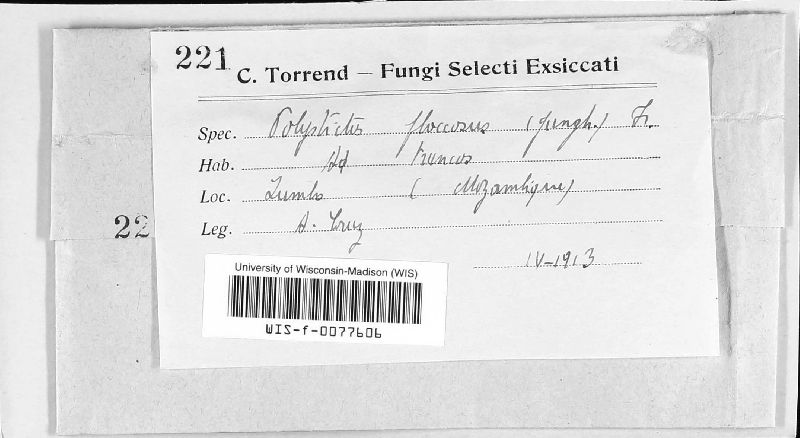 221
C. Torrend — Fungi Selecti Exsiccati
Spec. Polystictus floccosus (Jungh.) Fr.
Hab. Ad truncos
Loc. Lumbo (Mozambique)
Leg. A. Cruz
IV-1913
22
University of Wisconsin-Madison (WIS)
WIS-f-0077606